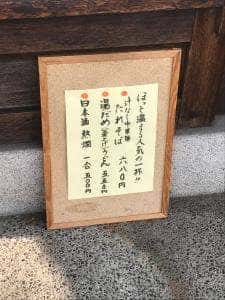 ほっと温まる人気の一杯!!
汁なし中華麺
たれそば 六八〇円
湯だめ(釜あげ)うどん 五五〇円
日本酒 熱燗 一合 五〇〇円